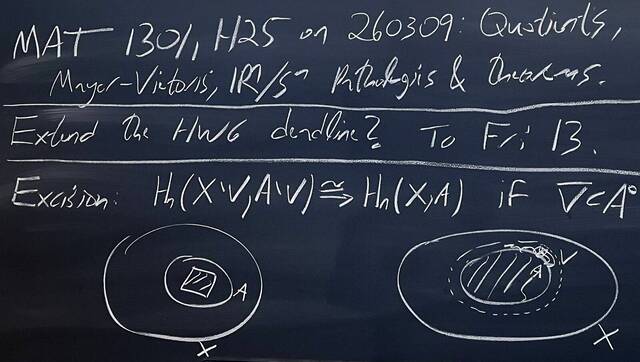 MAT 1301, H25 on 260309: Quotients,
Mayer-Vietoris, IRⁿ/Sⁿ Pathologies & theorems.
Extend the HW6 deadline? To Fri 13.
Excision: Hₙ(X\V, A\V) ≅→ Hₙ(X,A) if V̅⊂A°
A
X
A
V
X